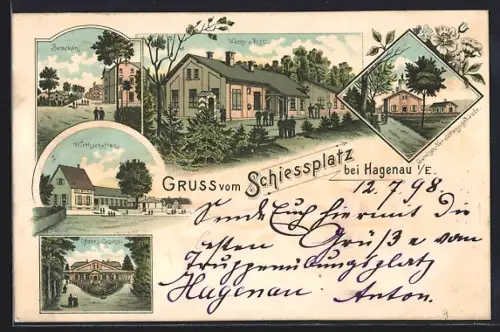 Baracken
Wache u. Post.
Wirthschaften
Offiziers-Casino.
GRUSS vom Schiessplatz
bei Hagenau i/E.
12.7.98.
Sende Euch hiermit die
esten Grüße vom
Truppenübungsplatz
Hagenau Anton.